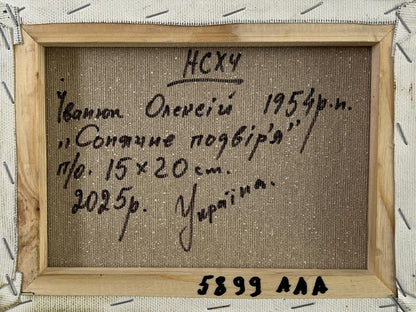 НСХУ
Іванюк Олексій 1954р.н.
„Сонячне подвір'я"
п/о. 15×20 см.
2025р. Україна.
5899 ААА